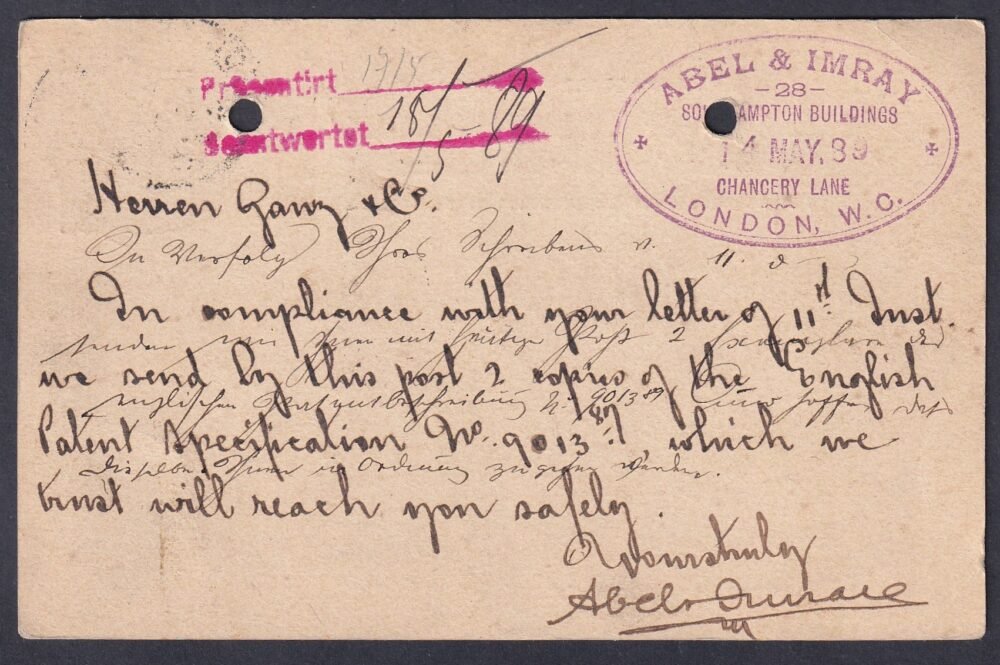 Präsentirt 19/5
Beantwortet 18/5 89
ABEL & IMRAY
- 28 -
SOUTHAMPTON BUILDINGS
14 MAY. 89
CHANCERY LANE
LONDON, W.C.
Herren Ganz & Co.
In Verfolg Ihres Schreibens v. 11. d
In compliance with your letter of 11th Inst.
senden wir Ihnen mit heutiger Post 2 Exemplare der
we send by this post 2 copies of the English
englischen Patentbeschreibung 9013 89 und hoffen dass
Patent Specification No. 9013 87 which we
dieselben Ihnen in Ordnung zugehen werden.
trust will reach you safely.
Yours truly
Abel & Imray